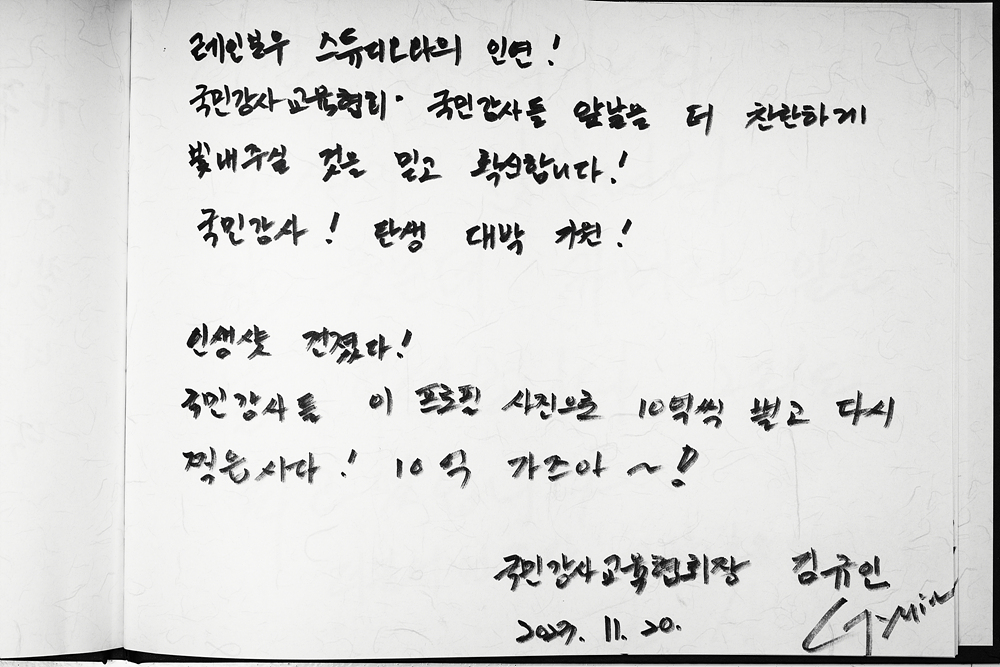 레인보우 스튜디오와의 인연!
국민강사교육협회· 국민강사들 앞날을 더 찬란하게
빛내주실 것을 믿고 확신합니다!
국민강사! 탄생 대박 기원!
인생샷 건졌다!
국민강사들 이 프로필 사진으로 10억씩 벌고 다시
찍읍시다! 10억 가즈아~!
국민강사교육협회장 김규인
11. 20.